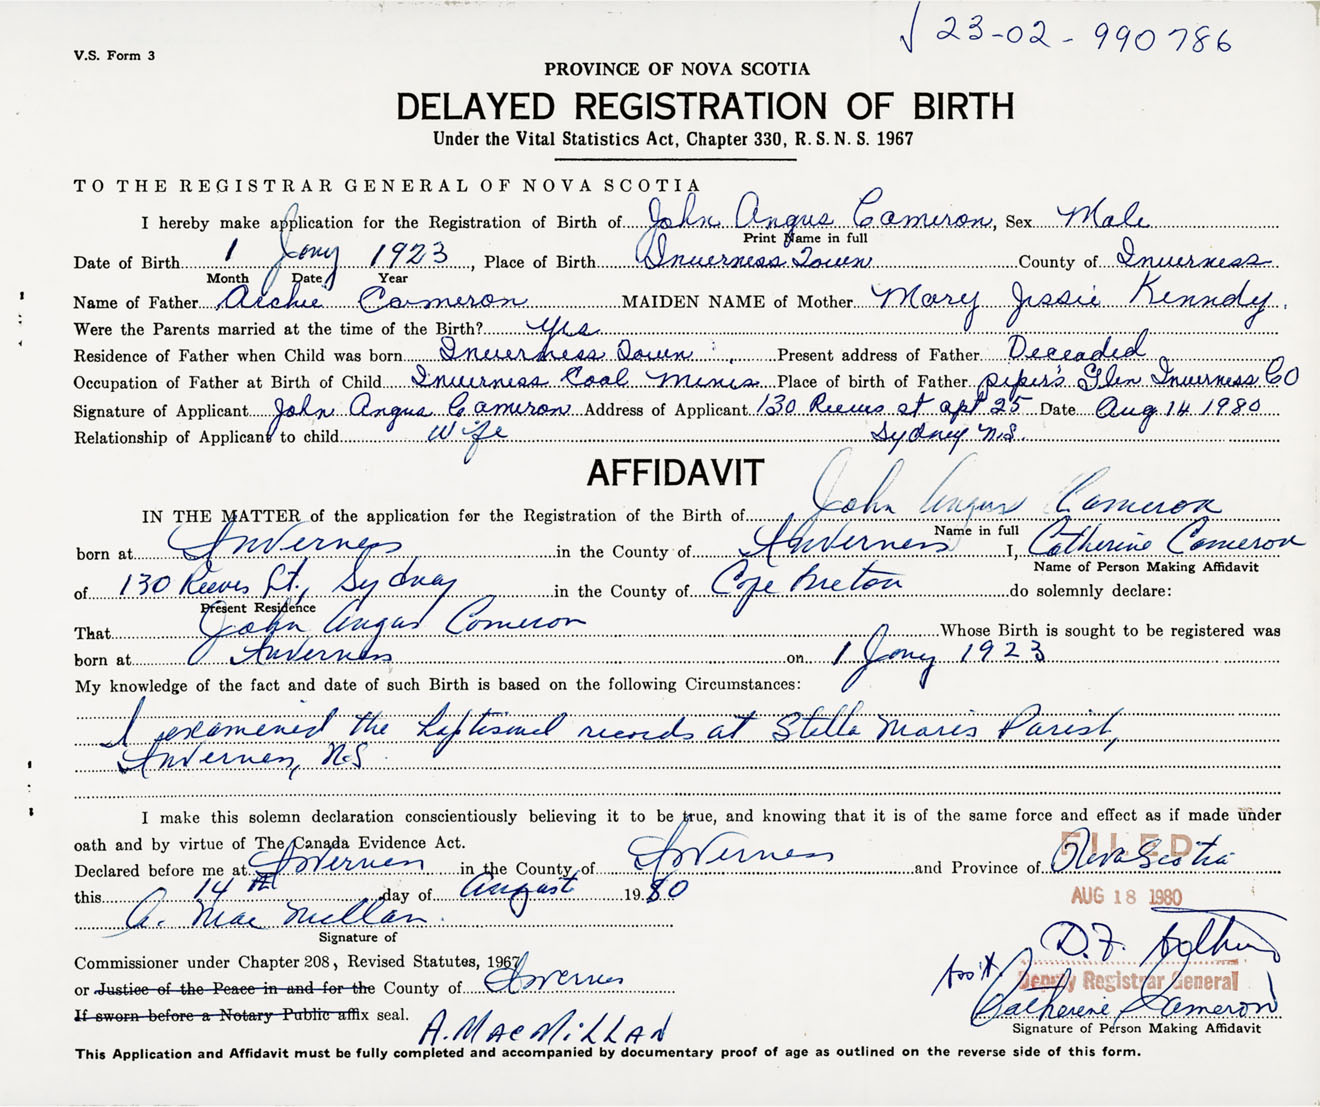 √ 23-02-990786
V.S. Form 3
PROVINCE OF NOVA SCOTIA
DELAYED REGISTRATION OF BIRTH
Under the Vital Statistics Act, Chapter 330, R.S.N.S. 1967
TO THE REGISTRAR GENERAL OF NOVA SCOTIA
I hereby make application for the Registration of Birth of John Angus Cameron, Sex Male
Print Name in full
Date of Birth 1 Jany 1923, Place of Birth Inverness Town County of Inverness
Month Date Year
Name of Father Archie Cameron MAIDEN NAME of Mother Mary Jessie Kennedy.
Were the Parents married at the time of the Birth? Yes
Residence of Father when Child was born Inverness Town Present address of Father Deceaded
Occupation of Father at Birth of Child Inverness Coal Mines Place of birth of Father Piper's Glen Inverness CO
Signature of Applicant John Angus Cameron Address of Applicant 130 Reeves st apt 25 Date Aug 14 1980
Relationship of Applicant to child wife Sydney N.S.
AFFIDAVIT
IN THE MATTER of the application for the Registration of the Birth of John Angus Cameron
Name in full
born at Inverness in the County of Inverness I, Catherine Cameron
Name of Person Making Affidavit
of 130 Reeves St., Sydney in the County of Cape Breton do solemnly declare:
Present Residence
That John Angus Cameron Whose Birth is sought to be registered was
born at Inverness on 1 Jany 1923
My knowledge of the fact and date of such Birth is based on the following Circumstances:
I examined the baptismal records at Stella Maris Parish,
Inverness, N.S.
I make this solemn declaration conscientiously believing it to be true, and knowing that it is of the same force and effect as if made under
oath and by virtue of The Canada Evidence Act.
Declared before me at Inverness in the County of Inverness and Province of Nova Scotia
FILED
this 14th day of August 1980
AUG 18 1980
A. MacMillan
Signature of
D.F.
Commissioner under Chapter 208, Revised Statutes, 1967
Ass't Deputy Registrar General
or Justice of the Peace in and for the County of Inverness
Catherine Cameron
If sworn before a Notary Public affix seal.
Signature of Person Making Affidavit
A. MACMILLAN
This Application and Affidavit must be fully completed and accompanied by documentary proof of age as outlined on the reverse side of this form.